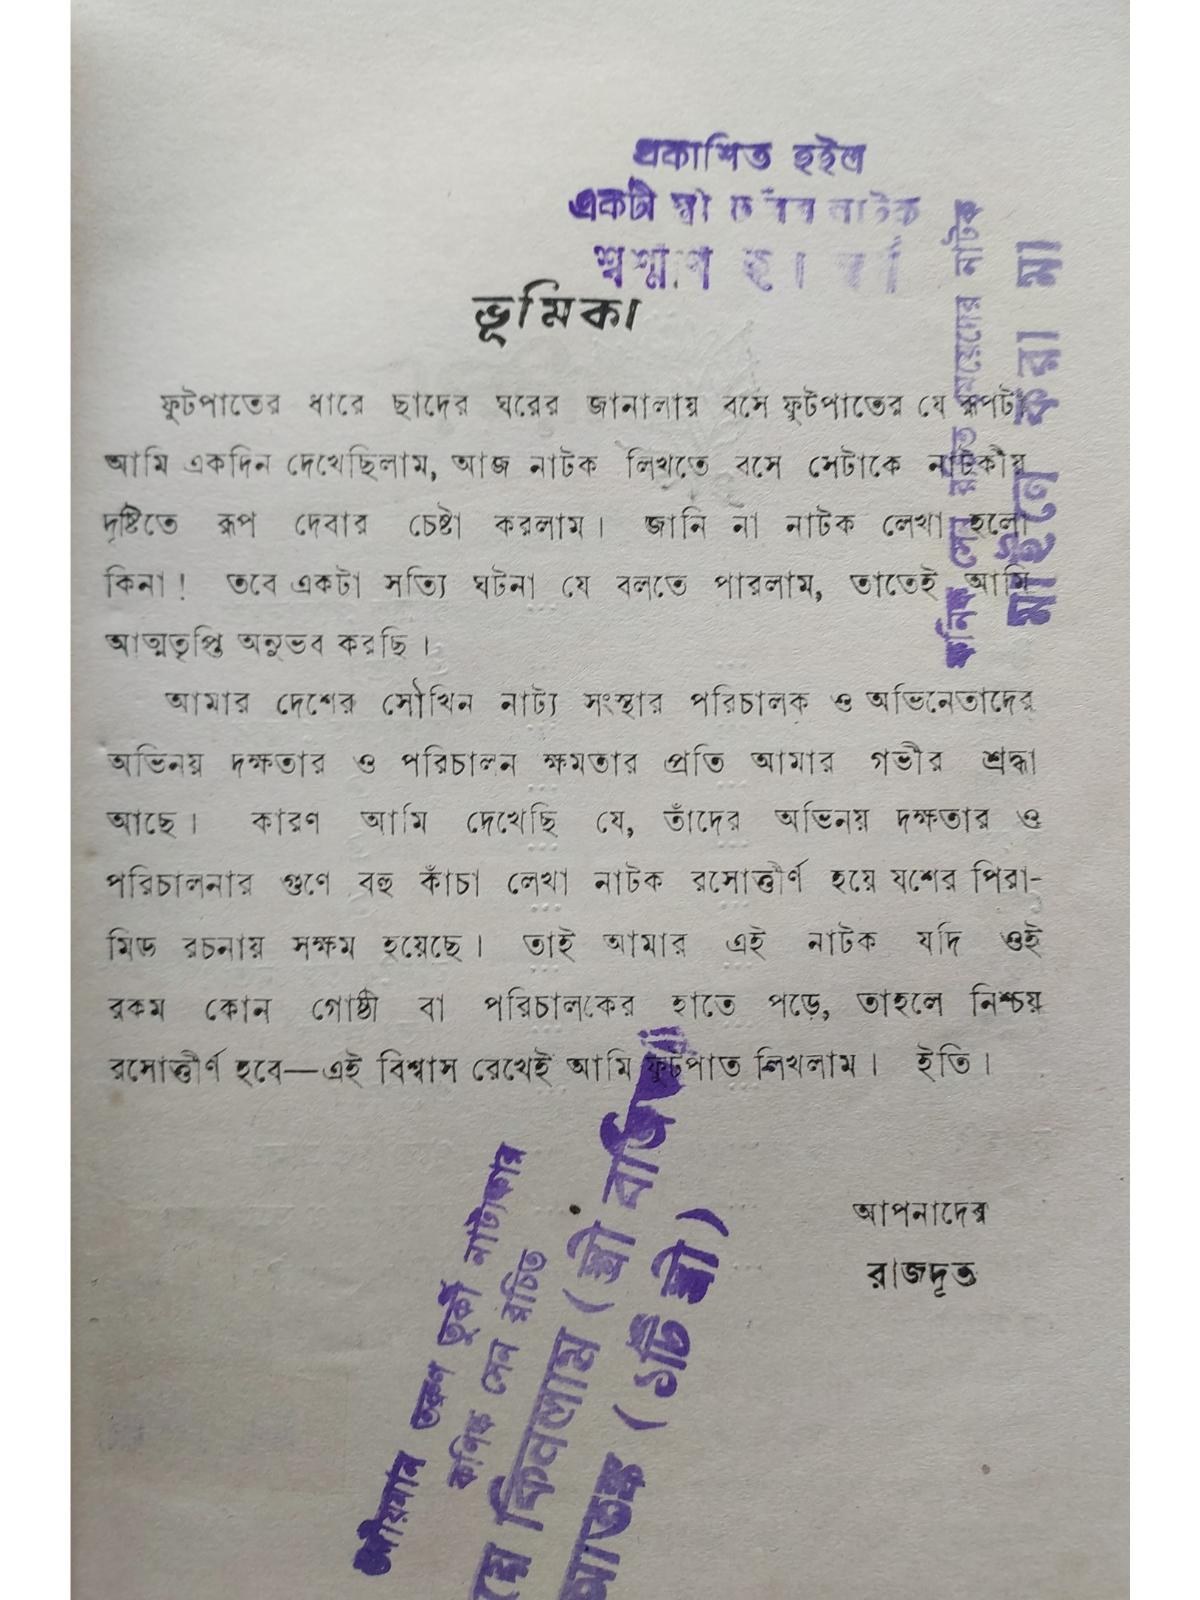 প্রকাশিত হইল
একটী স্ত্রী নাটক
শ্মশান
ভূমিকা
ফুটপাতের ধারে ছাদের ঘরের জানালায় বসে ফুটপাতের যে রূপটা
আমি একদিন দেখেছিলাম, আজ নাটক লিখতে বসে সেটাকে নাটকীয়
দৃষ্টিতে রূপ দেবার চেষ্টা করলাম। জানি না নাটক লেখা হলো
কিনা! তবে একটা সত্যি ঘটনা যে বলতে পারলাম, তাতেই আমি
আত্মতৃপ্তি অনুভব করছি।
আমার দেশের সৌখিন নাট্য সংস্থার পরিচালক ও অভিনেতাদের
অভিনয় দক্ষতার ও পরিচালন ক্ষমতার প্রতি আমার গভীর শ্রদ্ধা
আছে। কারণ আমি দেখেছি যে, তাঁদের অভিনয় দক্ষতার ও
পরিচালনার গুণে বহু কাঁচা লেখা নাটক রসোত্তীর্ণ হয়ে যশের পিরা-
মিড রচনায় সক্ষম হয়েছে। তাই আমার এই নাটক যদি ওই
রকম কোন গোষ্ঠী বা পরিচালকের হাতে পড়ে, তাহলে নিশ্চয়
রসোত্তীর্ণ হবে—এই বিশ্বাস রেখেই আমি ফুটপাত লিখলাম। ইতি।
আপনাদের
রাজদূত
কনিষ্ক সেন রচিত মেয়েদের নাটক
মাইনে করা মা
তরুণ তুর্কী নাট্যকার
কণিষ্ক সেন রচিত
কিনলাম (স্ত্রী বর্জিত)
আতঙ্ক (১টি স্ত্রী)